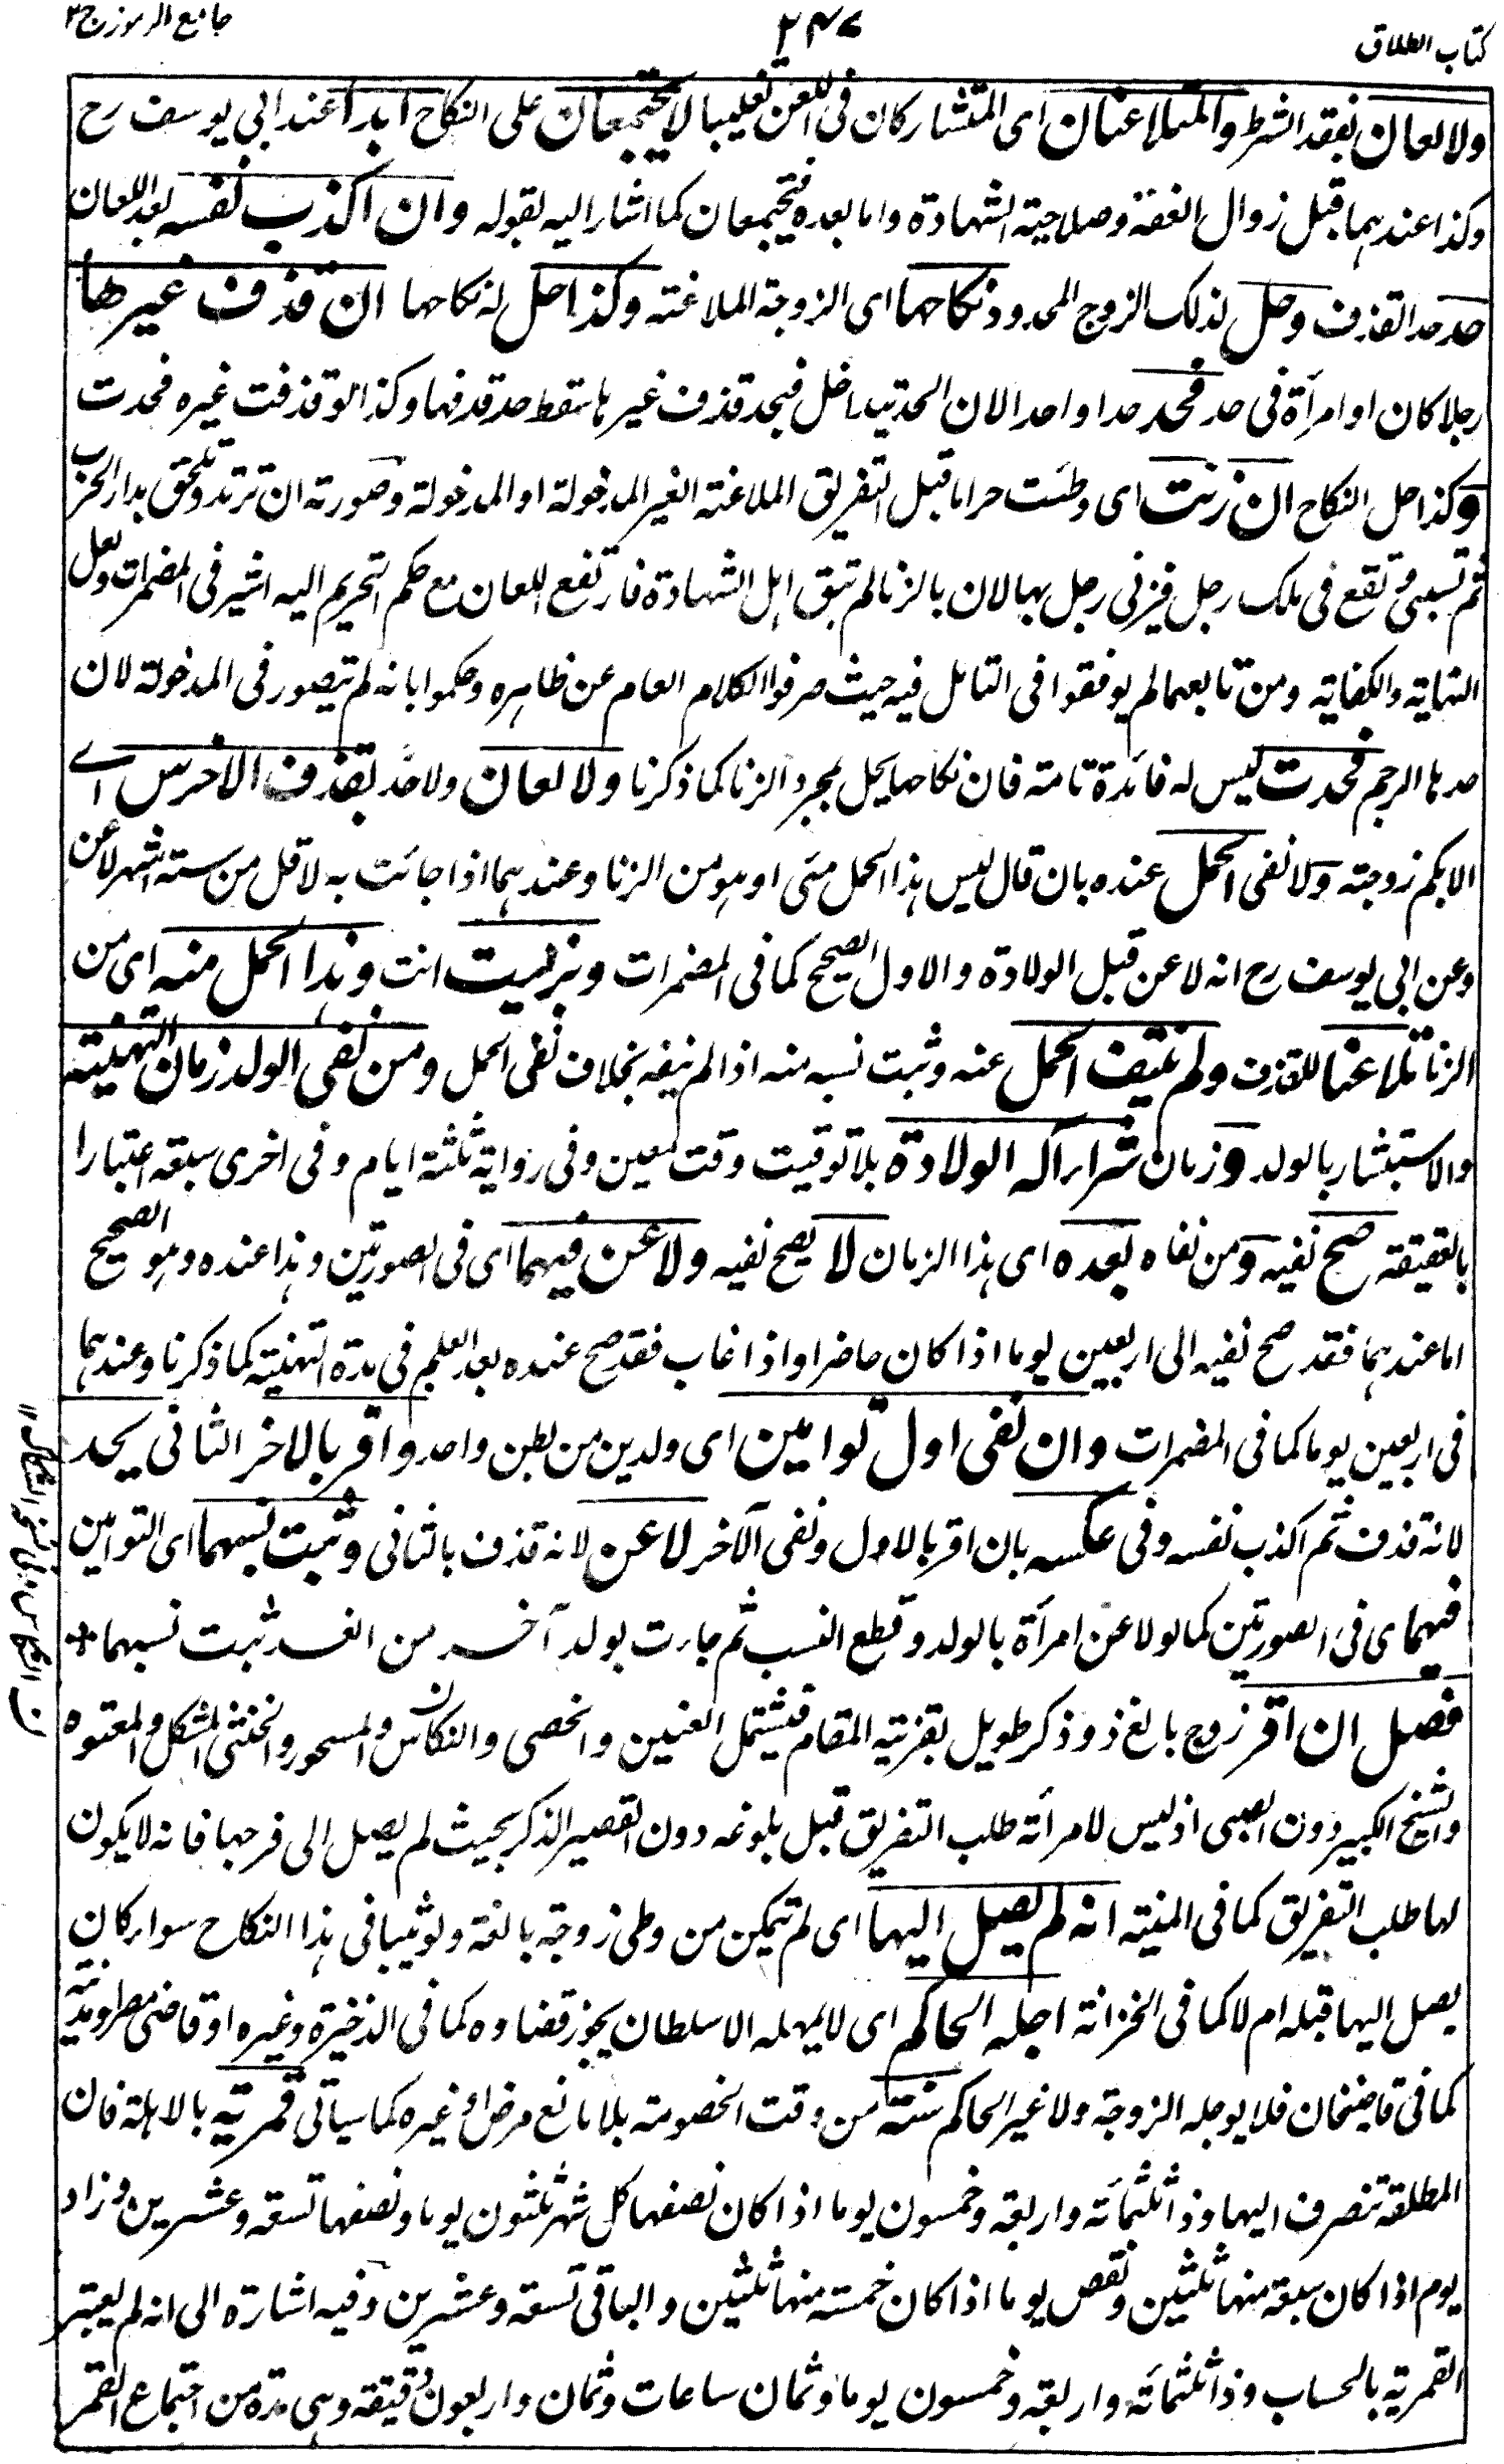 كتاب الطلاق
٢٤٧
جامع الرموز ج ٢
ولا لعان بفقد الشرط والمتلاعنان اى المتشاركان فى اللعن تغليبا لا يجتمعان على النكاح ابدا عند ابى يوسف رح
وكذا عندهما قبل زوال العفة وصلاحية الشهادة واما بعده فيجتمعان كما اشار اليه بقوله وان اكذب نفسه بعد اللعان
حد حد القذف وحل لذلك الزوج المحدود نكاحها اى الزوجة الملاعنة وكذا حل له نكاحها ان قذف غيرها
رجلا كان او امرأة فى حد فحد حدا واحدا لان الحد يتداخل فبحد قذف غيرها سقط حد قذفها وكذا لو قذفت غيره فحدت
وكذا حل النكاح ان زنت اى وطئت حراما قبل التفريق الملاعنة الغير المدخولة او المدخولة وصورته ان ترتد وتلحق بدار الحرب
ثم تسبى وتقع فى ملك رجل فيزنى رجل بها لان بالزنا لم تبق اهل الشهادة فارتفع اللعان مع حكم التحريم اليه اشير فى المضمرات ولعل
النهاية والكفاية ومن تابعهما لم يوفقوا فى التامل فيه حيث صرفوا الكلام العام عن ظاهره وحكموا بانه لم يتصور فى المدخولة لان
حدها الرجم فحدت ليس له فائدة تامة فان نكاحها يحل بمجرد الزنا كما ذكرنا ولا لعان ولا حد بقذف الاخرس اے
الابكم زوجته ولا نفى الحمل عنده بان قال ليس هذا الحمل منى او هو من الزنا وعندهما اذا جائت به لاقل من ستة اشهر لاعن
وعن ابى يوسف رح انه لاعن قبل الولادة والاول الصحيح كما فى المضمرات وبزنيت انت وهذا الحمل منه اى من
الزنا تلاعنا للقذف ولم ينتف الحمل عنه وثبت نسبه منه اذا لم ينفه بخلاف نفى الحمل ومن نفى الولد زمان التهنية
والاستبشار بالولد وزمان شراء آلة الولادة بلا توقيت وقت معين وفى رواية ثلثة ايام وفى اخرى سبعة اعتبارا
بالعقيقة صح نفيه ومن نفاه بعده اى هذا الزمان لا يصح نفيه ولاعن فيهما اى فى الصورتين وهذا عنده وهو الصحيح
اما عندهما فقد صح نفيه الى اربعين يوما اذا كان حاضرا واذا غاب فقد صح عنده بعد العلم فى مدة التهنية كما ذكرنا وعندهما
فى اربعين يوما كما فى المضمرات وان نفى اول توامين اى ولدين من بطن واحد واقر بالاخر الثانى يحد
لانه قذف ثم اكذب نفسه وفى عكسه بان اقر بالاول ونفى الآخر لاعن لانه قذف بالثانى وثبت نسبهما اى التوامين
فيهما اى فى الصورتين كما لو لاعن امرأة بالولد وقطع النسب ثم جاءت بولد آخر من الغد ثبت نسبهما *
فصل ان اقر زوج بالغ ذو ذكر طويل بقرينة المقام فيشتمل العنين والخصى والنكاس والمسحور والخنثى المشكل والمعتوه
والشيخ الكبير دون الصبى اذ ليس لامرأته طلب التفريق قبل بلوغه دون القصير الذكر بحيث لم يصل الى فرجها فانه لا يكون
لها طلب التفريق كما فى المنية انه لم يصل اليها اى لم يتمكن من وطى زوجة بالغة ولو ثيبا فى هذا النكاح سواء كان
يصل اليها قبله ام لا كما فى الخزانة اجله الحاكم اى لا يمهله الا سلطان يجوز قضاوه كما فى الذخيرة وغيره او قاضى مصر او مدينة
كما فى قاضيخان فلا يوجله الزوجة ولا غير الحاكم سنة من وقت الخصومة بلا مانع مرض او غيره كما سياتى قمرية بالاهلة فان
المطلقة تنصرف اليها وذا ثلثمائة واربعة وخمسون يوما اذا كان نصفها كل شهر ثلثون يوما ونصفها تسعة وعشرين وزاد
يوم اذا كان سبعة منها ثلثين ونقص يوما اذا كان خمسة منها ثلثين والباقى تسعة وعشرين وفيه اشارة الى انه لم يعتبر
القمرية بالحساب وذا ثلثمائة واربعة وخمسون يوما وثمان ساعات وثمان واربعون دقيقة وهى مدة من اجتماع القمر